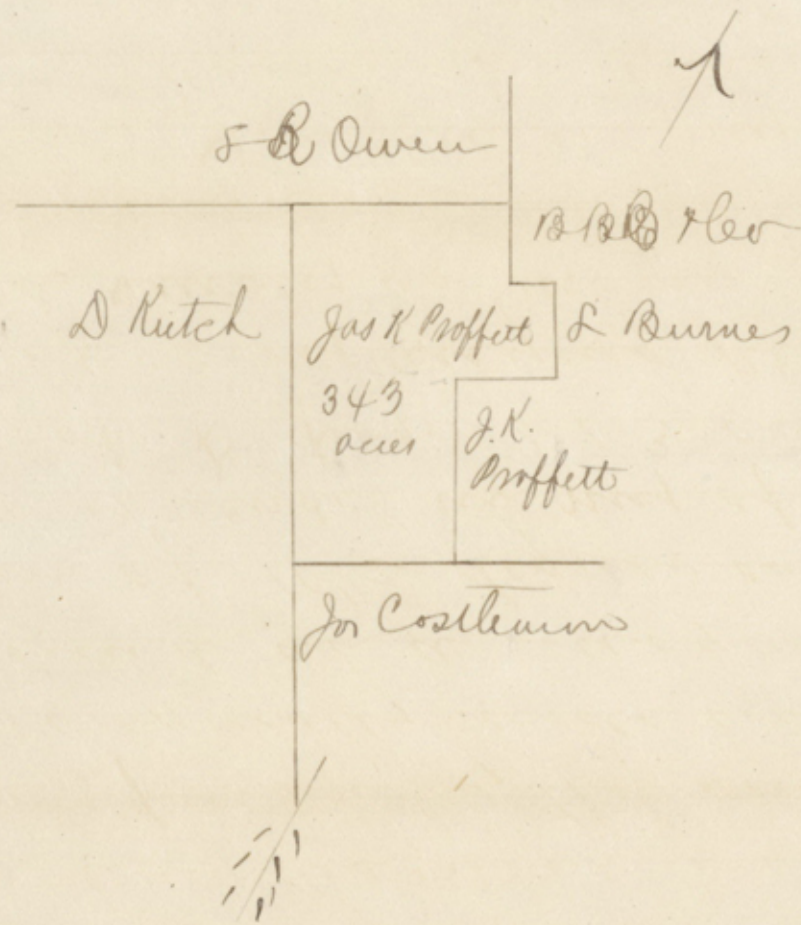 S R Owen
B B B
D Kutch
Jas K Proffett
S Burnes
343
acres
J. K.
Proffett
Jos Costlemon